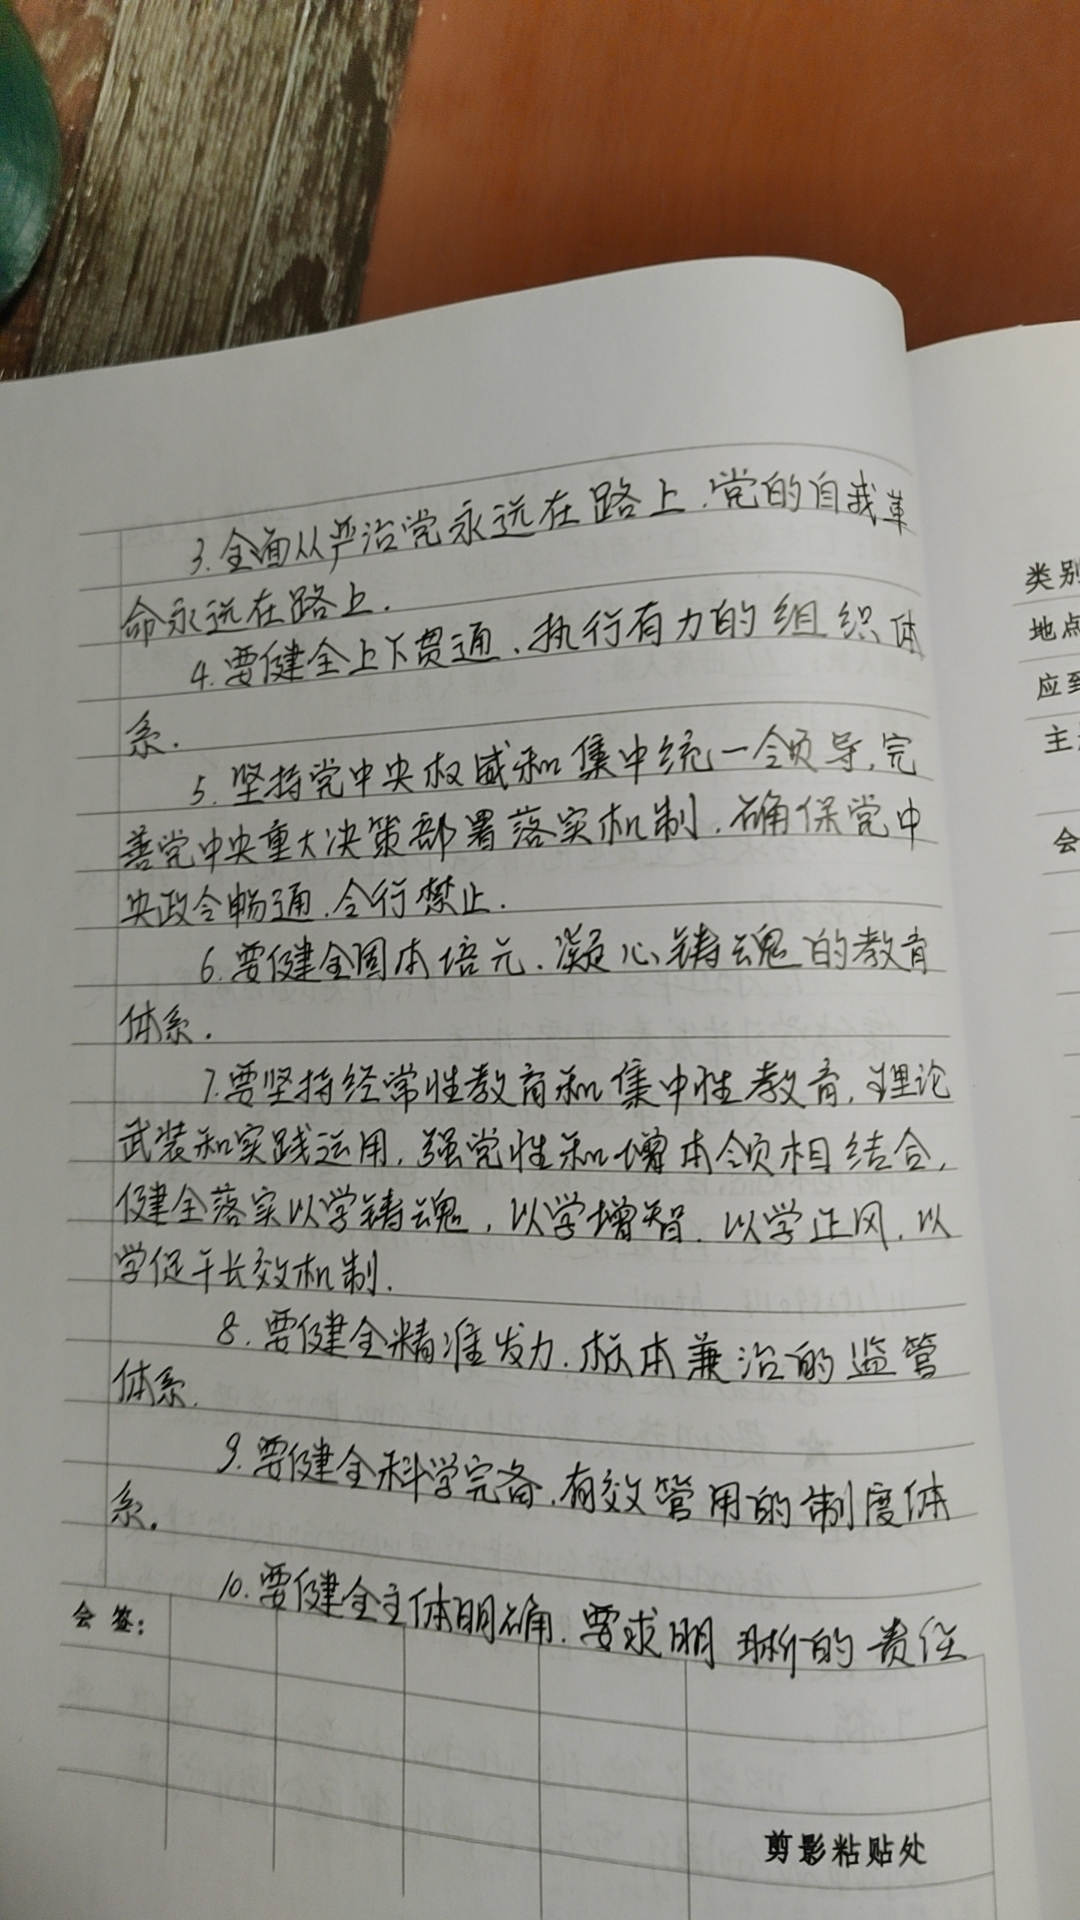 3.全面从严治党永远在路上.党的自我革
命永远在路上.
4.要健全上下贯通、执行有力的组织体
系.
5.坚持党中央权威和集中统一领导,完
善党中央重大决策部署落实机制,确保党中
央政令畅通、令行禁止.
6.要健全固本培元、凝心铸魂的教育
体系.
7.要坚持经常性教育和集中性教育,理论
武装和实践运用,强党性和增本领相结合,
健全落实以学铸魂、以学增智、以学正风、以
学促干长效机制.
8.要健全精准发力、标本兼治的监管
体系.
9.要健全科学完备、有效管用的制度体
系.
10.要健全主体明确、要求明晰的责任
会签:
剪影粘贴处
类别
地点
应到
主
会